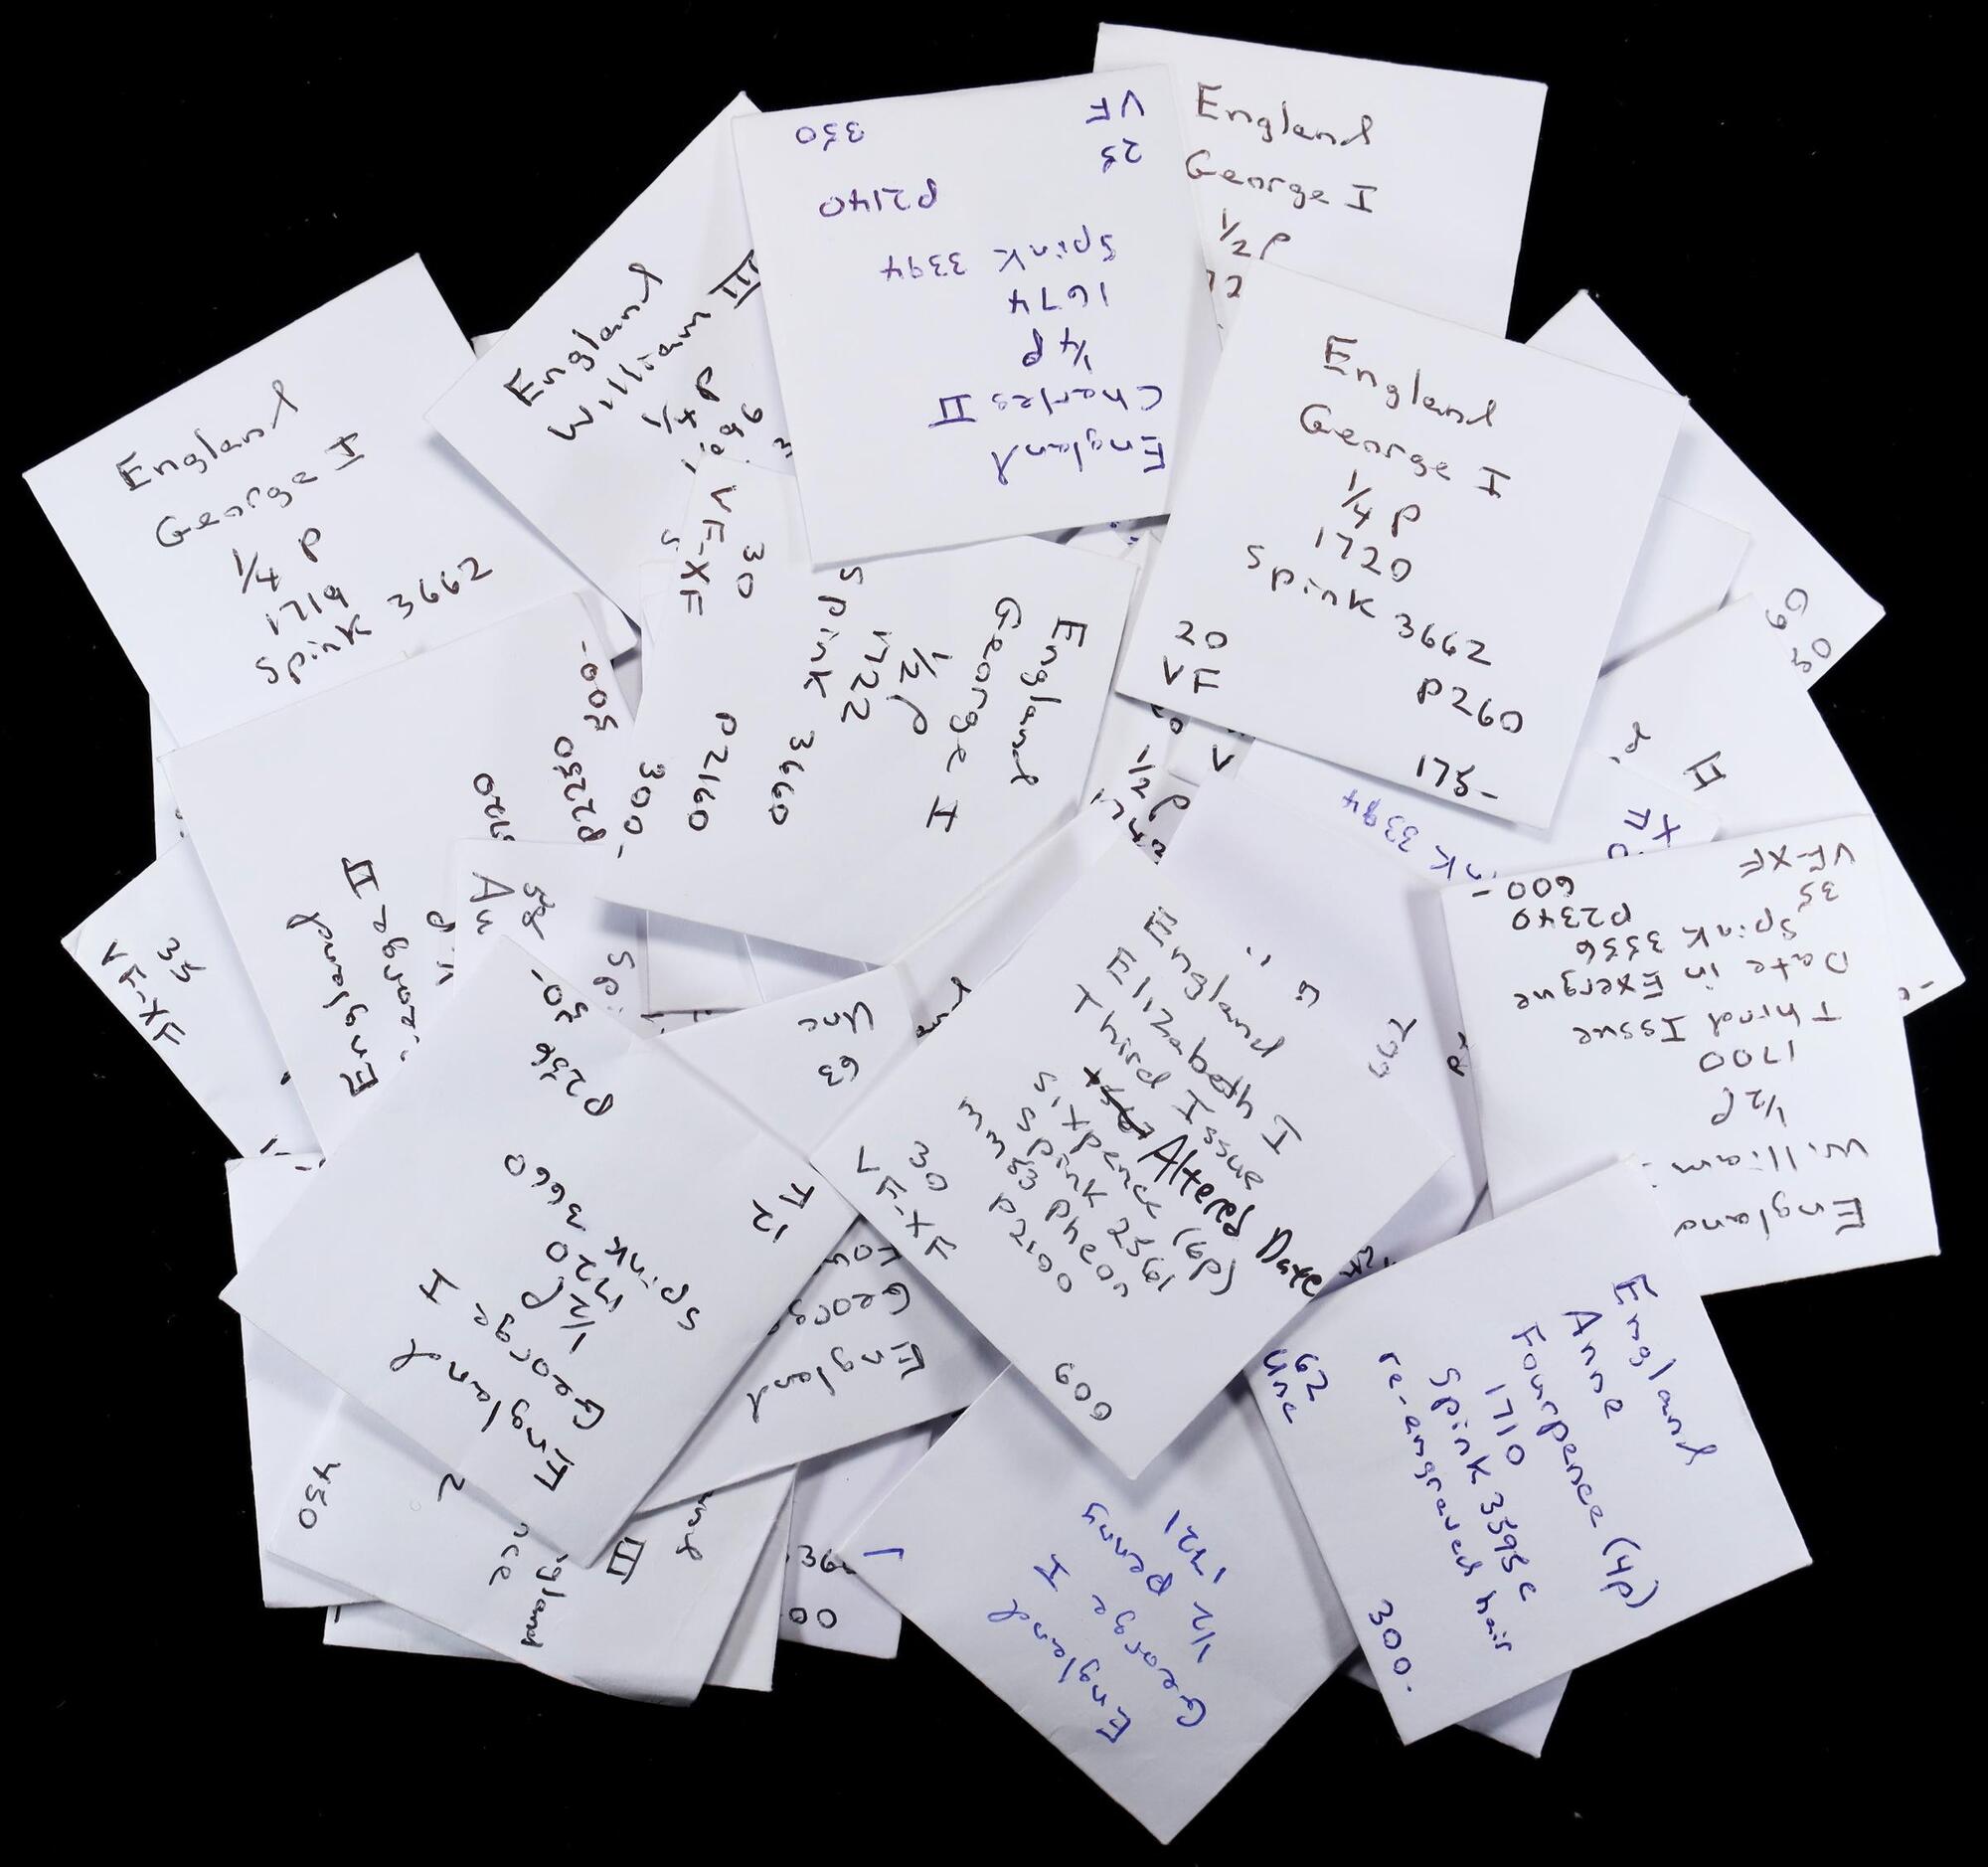 England
George I
1/2 P
VF
25
330
P2140
Spink 3394
1674
1/4 P
Charles II
England
England
William III
1/4 P
England
George I
1/4 P
1719
Spink 3662
England
George I
1/4 P
1720
Spink 3662
20
VF
P260
175-
England
George I
1/2 P
1722
Spink 3660
30
VF-XF
P2160
300-
500-
P2250
England
George II
35
VF-XF
II
XF
3394
1/2 P
England
William
1/2 P
1700
Third Issue
Date in Exergue
Spink 3556
35
VF-XF
P2340
600-
England
Elizabeth I
Third Issue
Altered Date
Sixpence (6P)
Spink 2561
mm53 pheon
30
VF-XF
P2100
609
Unc
63
England
England
George I
1/2 P
1720
Spink 3660
12
F
P236
50-
450
III
62
Unc
England
Anne
Fourpence (4P)
1710
Spink 3595c
re-engraved hair
300-
England
George I
1/2 Penny
1721